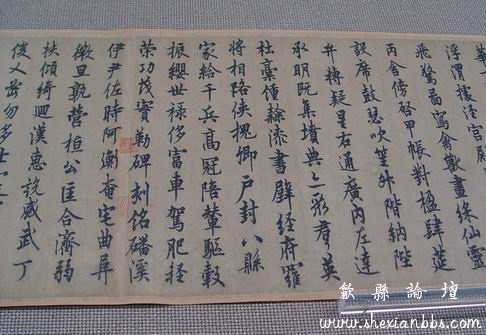 華
浮渭據涇宮殿
飛驚圖寫禽獸畫綵仙靈
丙舍傍啓甲帳對楹肆筵
設席鼓瑟吹笙升階納陛
弁轉疑星右通廣內左達
承明既集墳典亦聚群英
杜稾鍾隸漆書壁經府羅
將相路俠槐卿戶封八縣
家給千兵高冠陪輦驅轂
振纓世祿侈富車駕肥輕
策功茂實勒碑刻銘磻溪
伊尹佐時阿衡奄宅曲阜
微旦孰營桓公匡合濟弱
扶傾綺迴漢惠說感武丁
俊乂密勿多士寔
歙縣論壇
www.shexianbbs.com